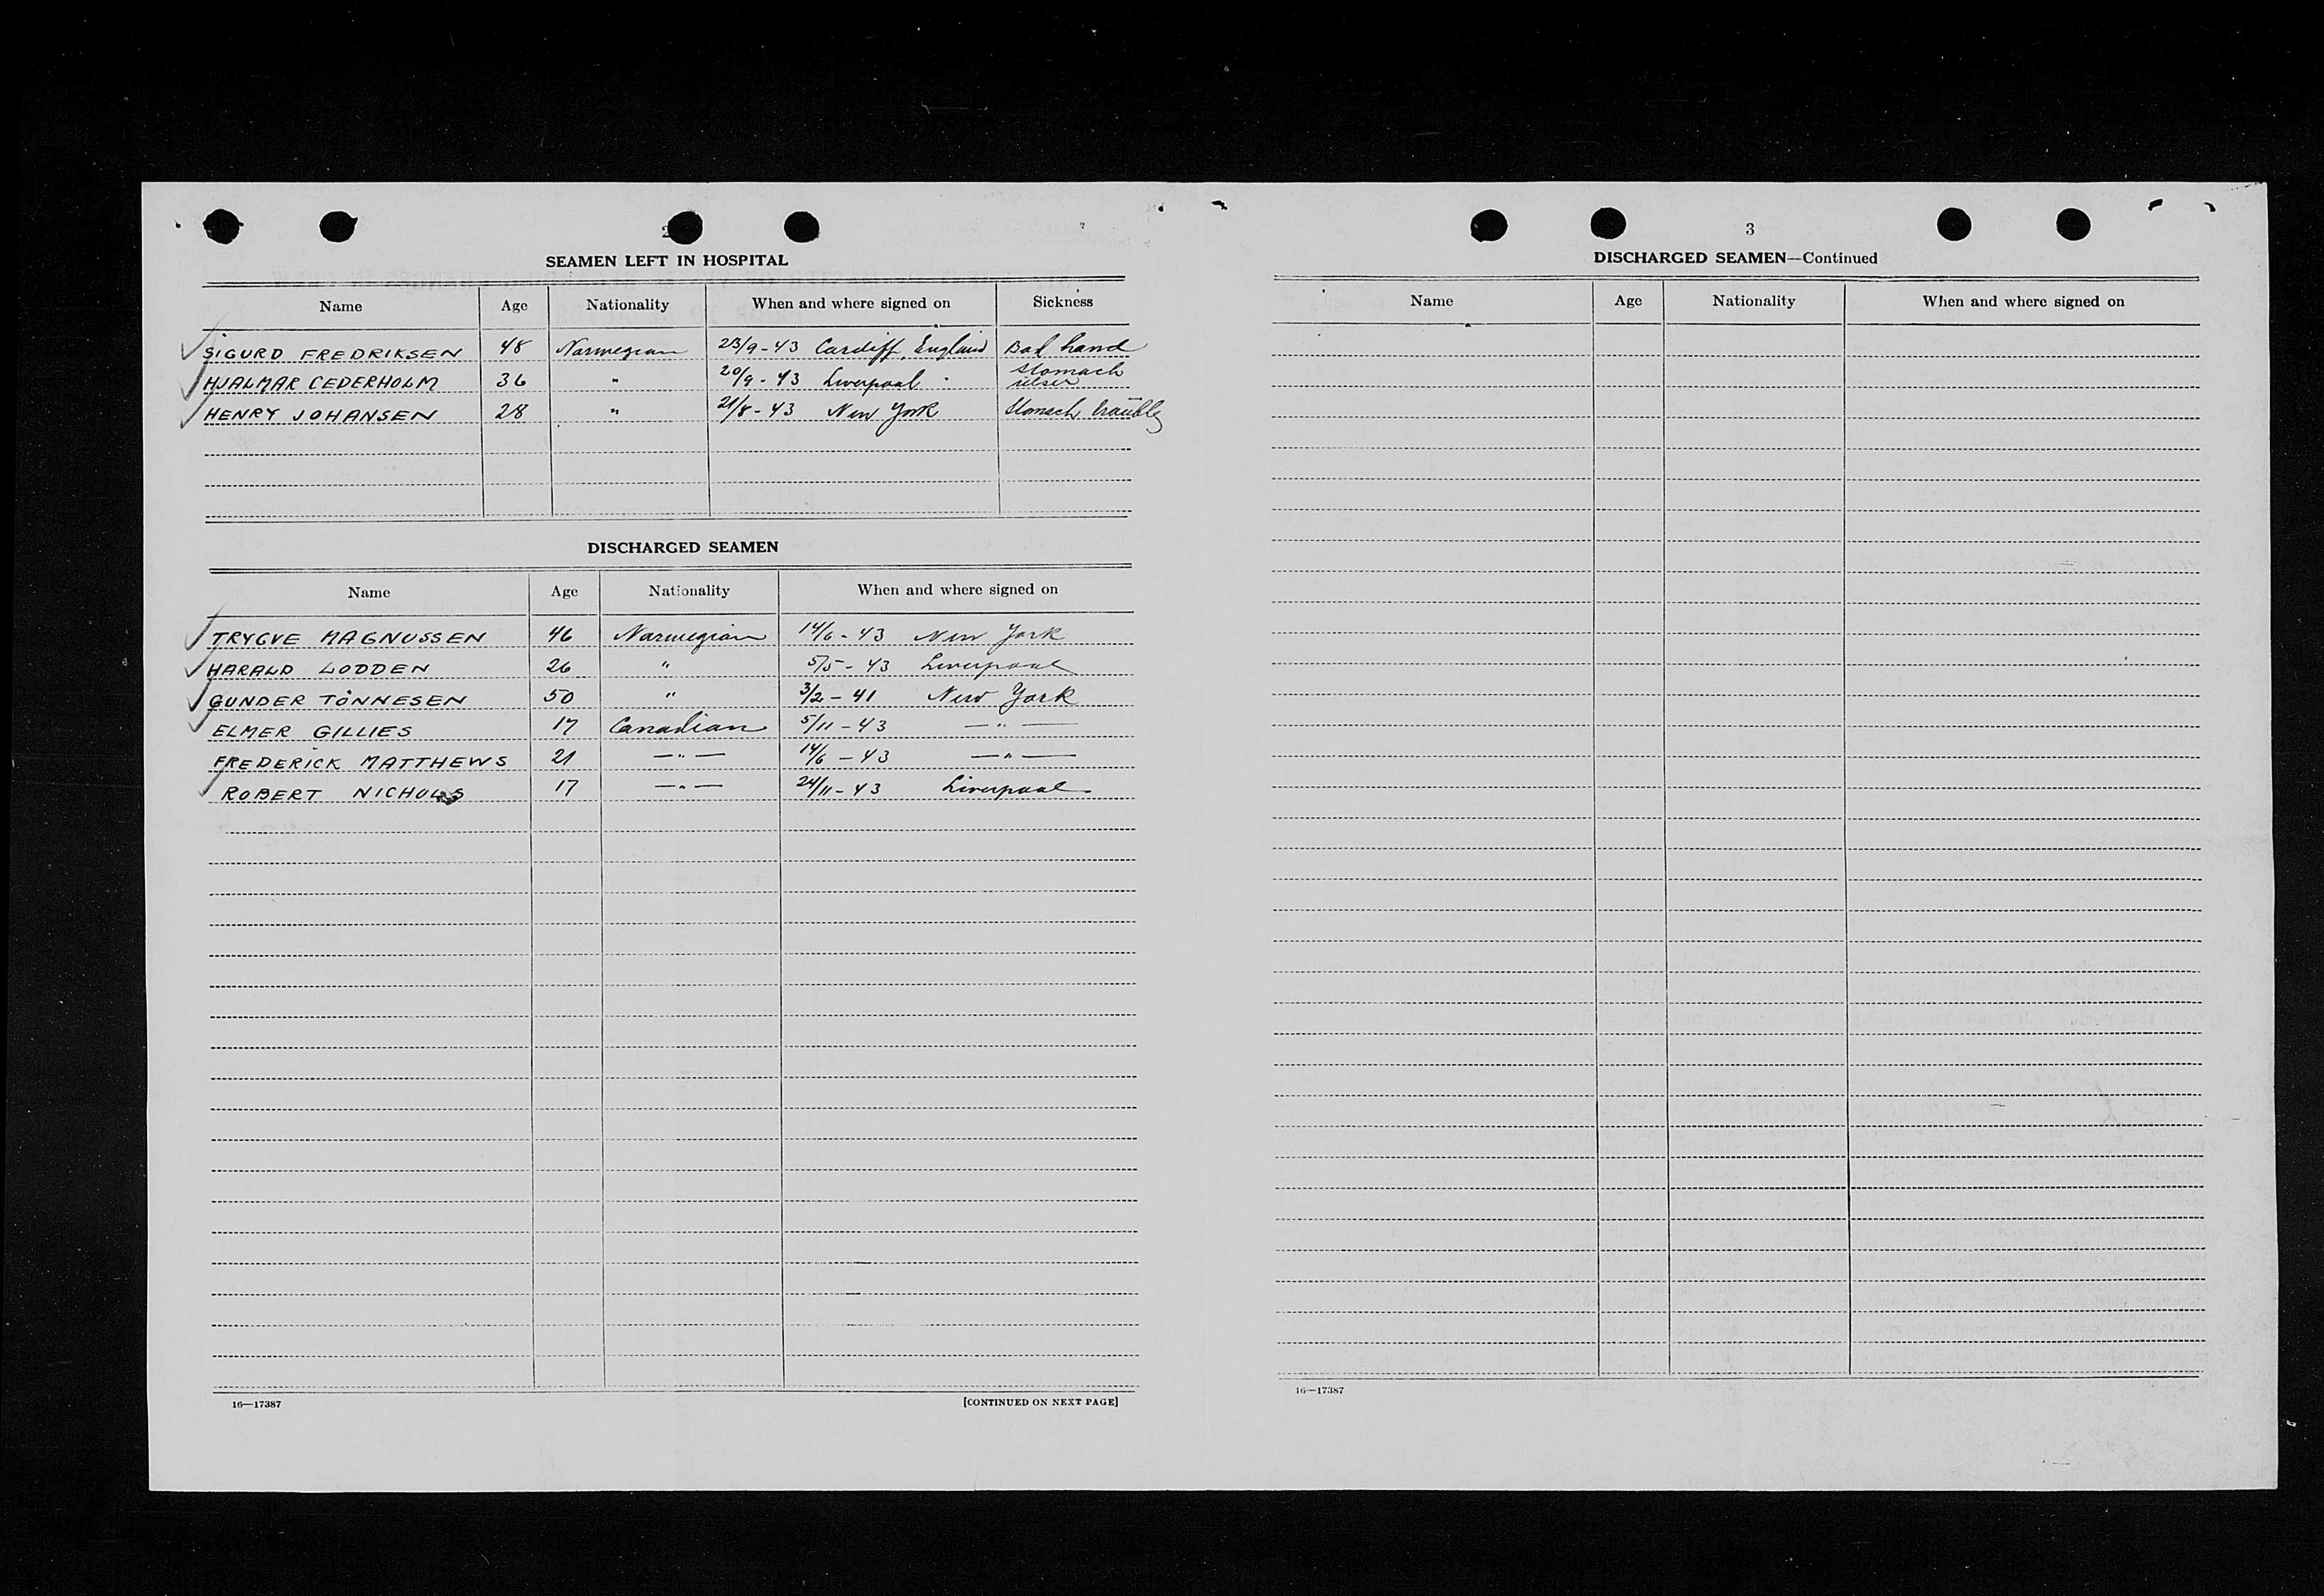 2
SEAMEN LEFT IN HOSPITAL
Name Age Nationality When and where signed on Sickness
SIGURD FREDRIKSEN 48 Norwegian 23/9-43 Cardiff, England Bad hand
HJALMAR CEDERHOLM 36 " 20/9-43 Liverpool " Stomach ulser
HENRY JOHANSEN 28 " 21/8-43 New York Stomach trouble
DISCHARGED SEAMEN
Name Age Nationality When and where signed on
TRYGVE MAGNUSSEN 46 Norwegian 14/6-43 New York
HARALD LODDEN 26 " 5/5-43 Liverpool
GUNDER TÖNNESEN 50 " 3/2-41 New York
ELMER GILLIES 17 Canadian 5/11-43 —"—
FREDERICK MATTHEWS 21 —"— 14/6-43 —"—
ROBERT NICHOLS 17 —"— 24/11-43 Liverpool
16—17387
[CONTINUED ON NEXT PAGE]
3
DISCHARGED SEAMEN—Continued
Name Age Nationality When and where signed on
16—17387